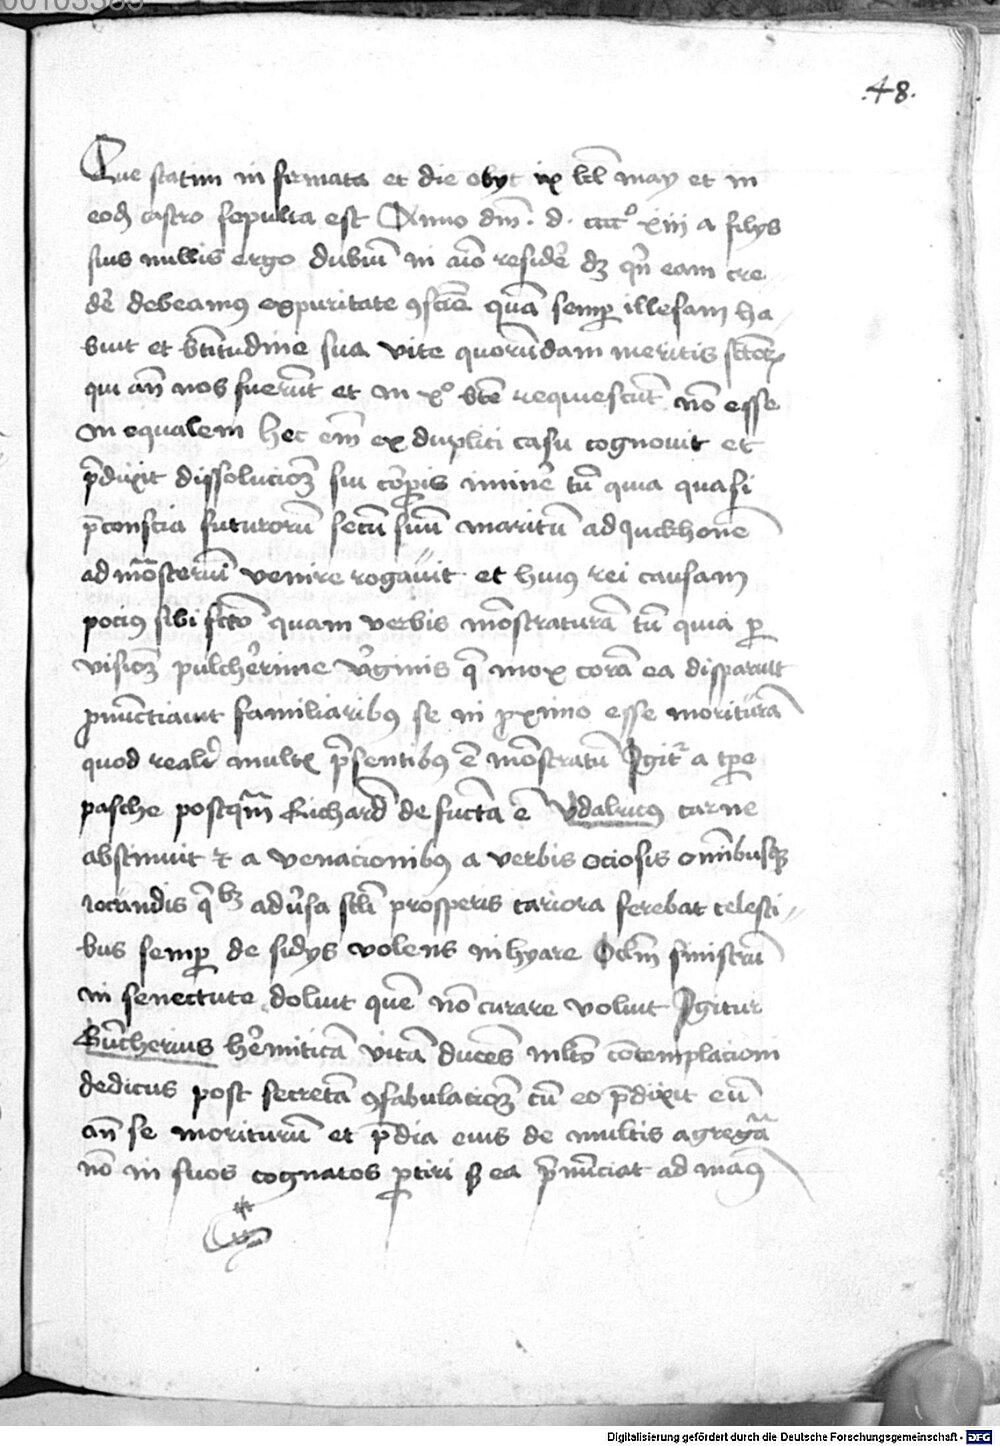 00103385
.48.
Que statim in firmata et die obyt ix kl may et in
eod castro sepulta est Anno dni . d . cccc° xiij a filys
suis nullis ergo dubiu in aio reside dz qn eam cre
de debeamus expuritate 9scie qua semp illesam ha
buit et btitudine sua vite quorundam meritis sctor
qui an nos fuerut et in x° bte requiescut no esse
in equalem hec em ex dupliti casu cognovit et
pdixit dissolucioz sui corpis imine tu quia quasi
pconscia futuroru secu suu maritu ad quckhone
ad mosteriu venire rogavit et huius rei causam
pocius sibi scto quam verbis mostratura tu quia p
visioz pulcherime virginis q mox cora ea disparuit
pnuctiavit familiaribus se in pximo esse moritura
quod realr multis psentibus e mostratu Igitr a tpe
pasche postqm Richard de fucta e Vdalricus carne
abstinuit et a venacionibus a verbis ociosis omibusqz
iocandis q adusa scli prosperis cariora ferebat celesti
bus semp de sidys volens inhyare Oclm sinistru
in senectute doluit que no curare voluit Igitur
Guntherius hemitica vita duces mlto cotemplacioni
dedicus post secreta 9fabulacioz cu eo pdixit eu
an se morituru et pdia eius de multis agregata
no in suos cognatos ptiri s ea pnuciat ad man9
Digitalisierung gefördert durch die Deutsche Forschungsgemeinschaft - DFG